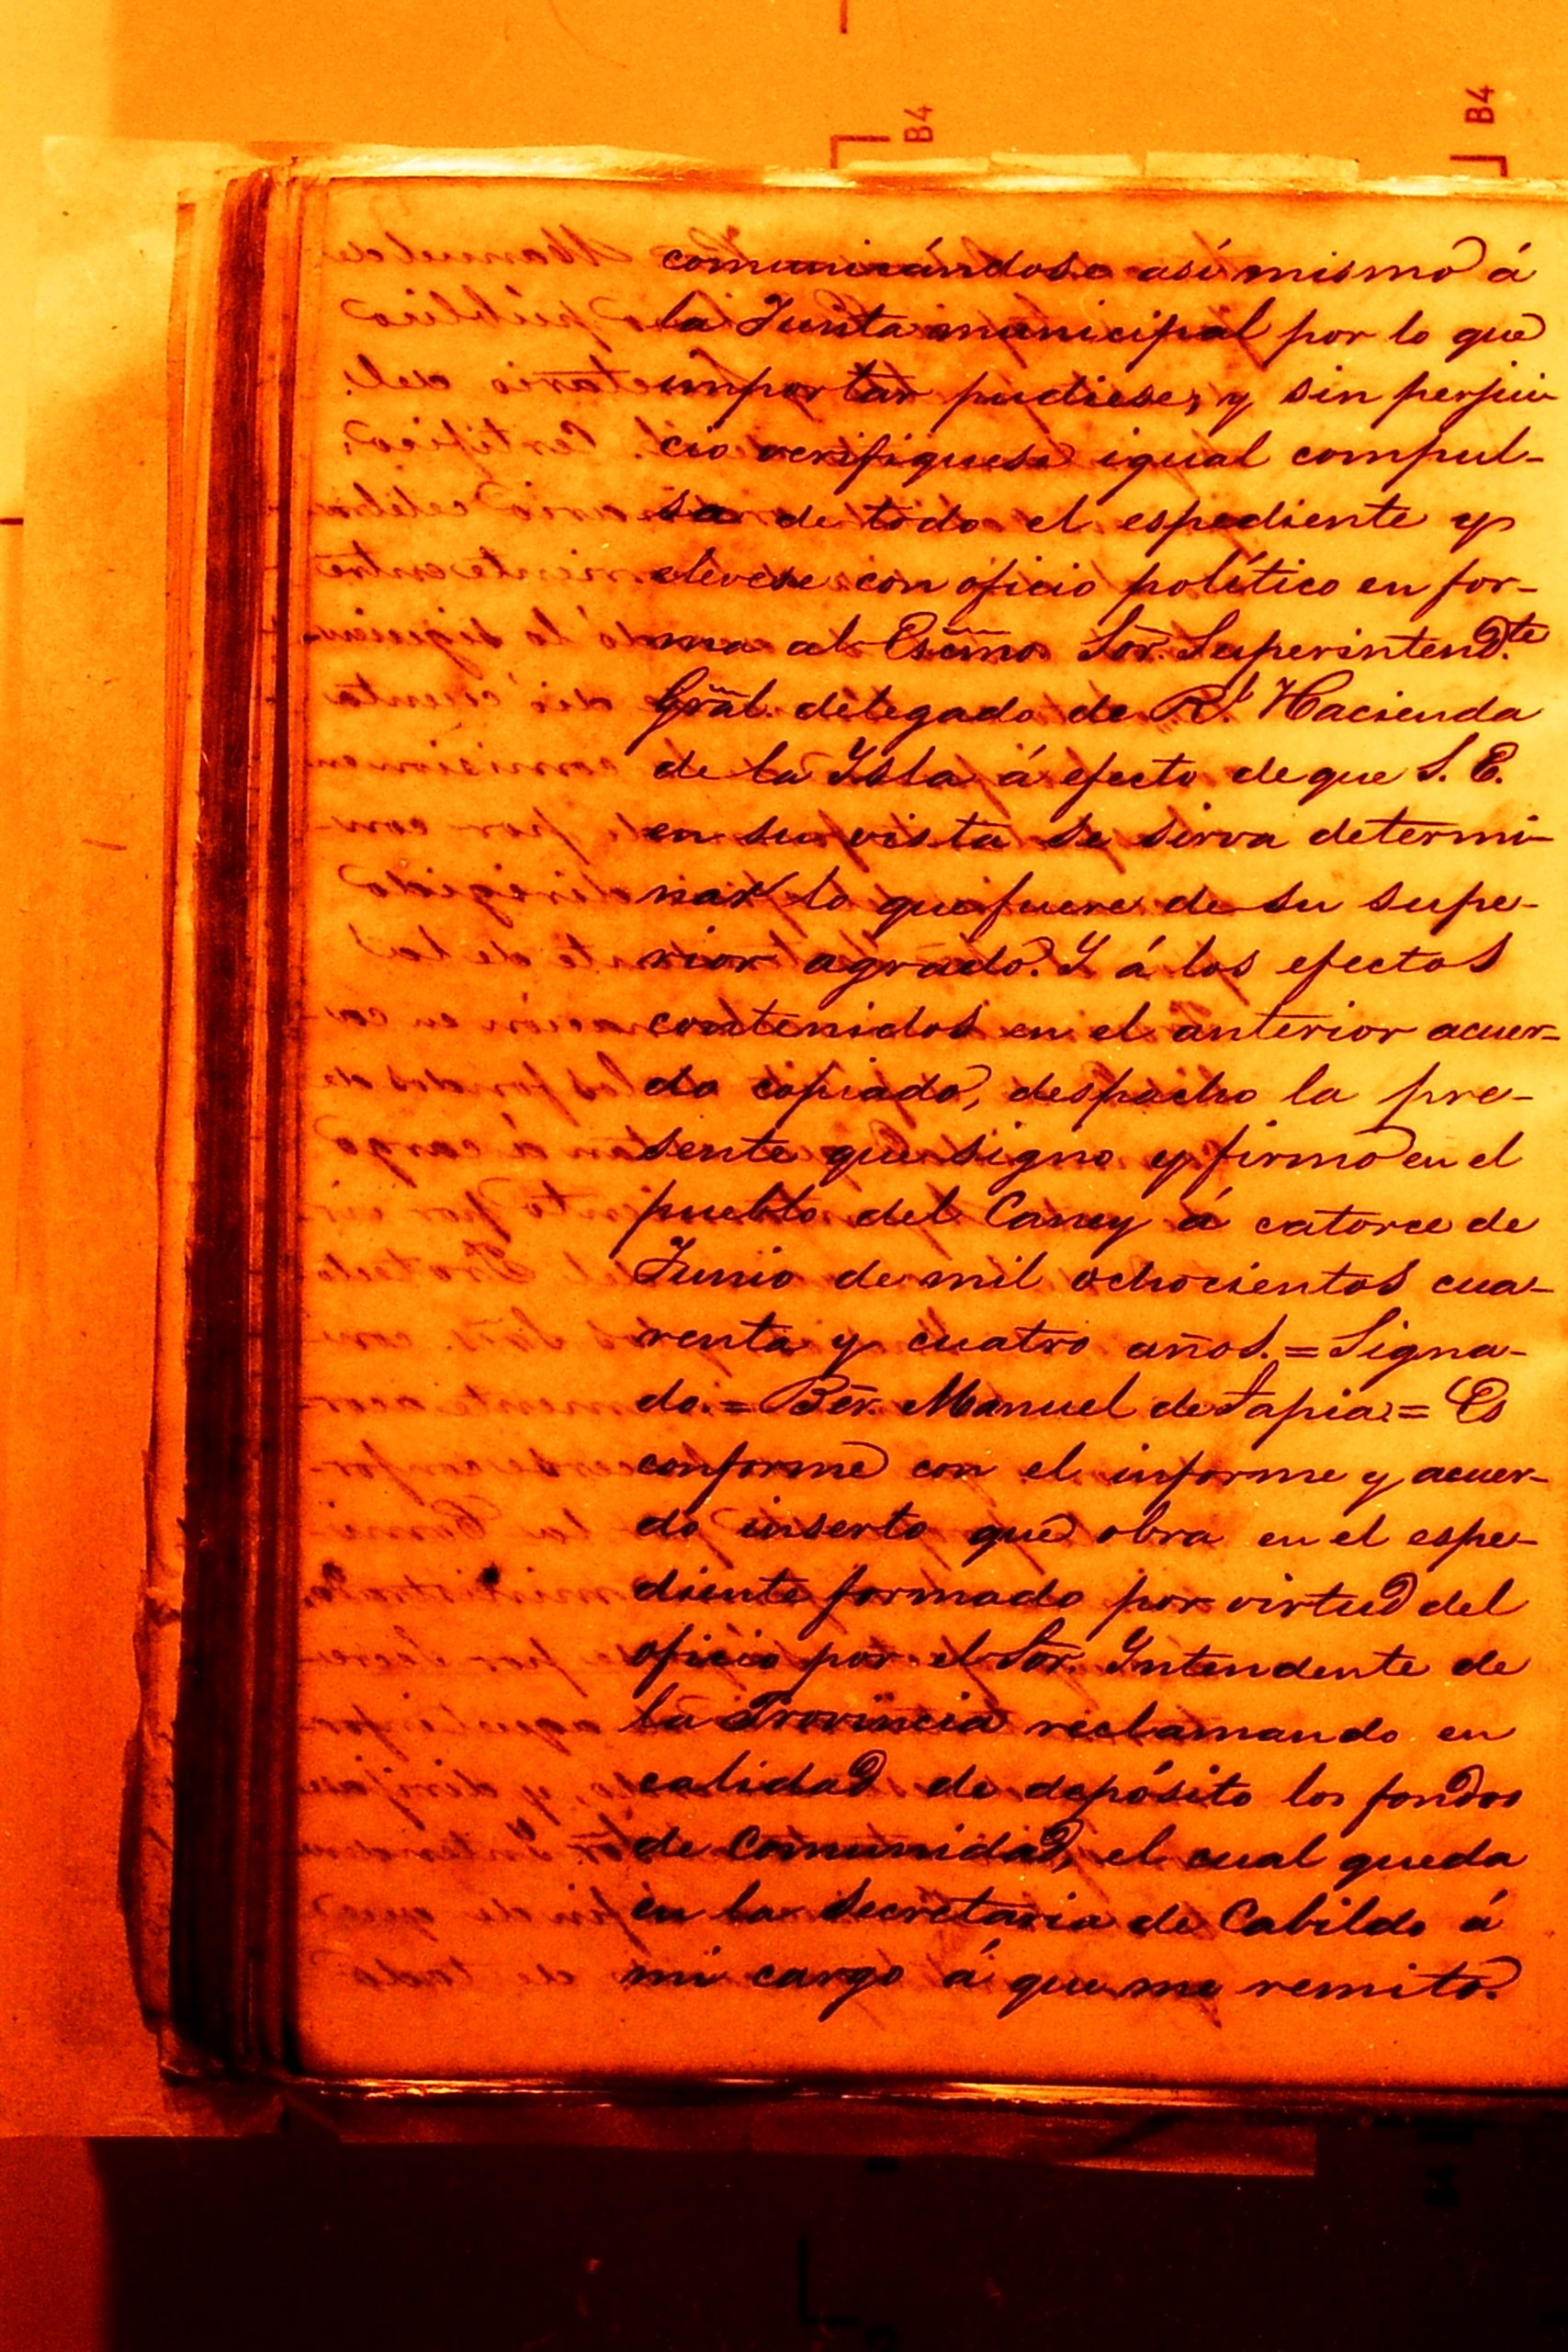 B4
B4
comunicándose así mismo á
la Junta municipal por lo que
importar pudiese, y sin perjui-
cio verifiquese igual compul-
sa de todo el espediente y
elevese con oficio político en for-
ma al Escmo. Sor. Superintend.te
Gral. delegado de Rl. Hacienda
de la Ysla á efecto de que S. E.
en su vista se sirva determi-
nar lo que fuere de su supe-
rior agrado. Y á los efectos
contenidos en el anterior acuer-
do copiado, despacho la pre-
sente que signo y firmo en el
pueblo del Caney á catorce de
Junio de mil ochocientos cua-
renta y cuatro años. = Signa-
do. = Ber. Manuel de Tapia = Es
conforme con el informe y acuer-
do inserto que obra en el espe-
diente formado por virtud del
oficio por el Sor. Yntendente de
la Provincia reclamando en
calidad de depósito los fondos
de Comunidad, el cual queda
en la Secretaria de Cabildo á
mi cargo á que me remito.